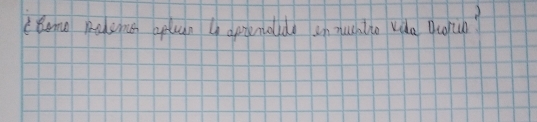 ¿Como Podemos aplicar lo aprendido en nuestra vida Diaria?